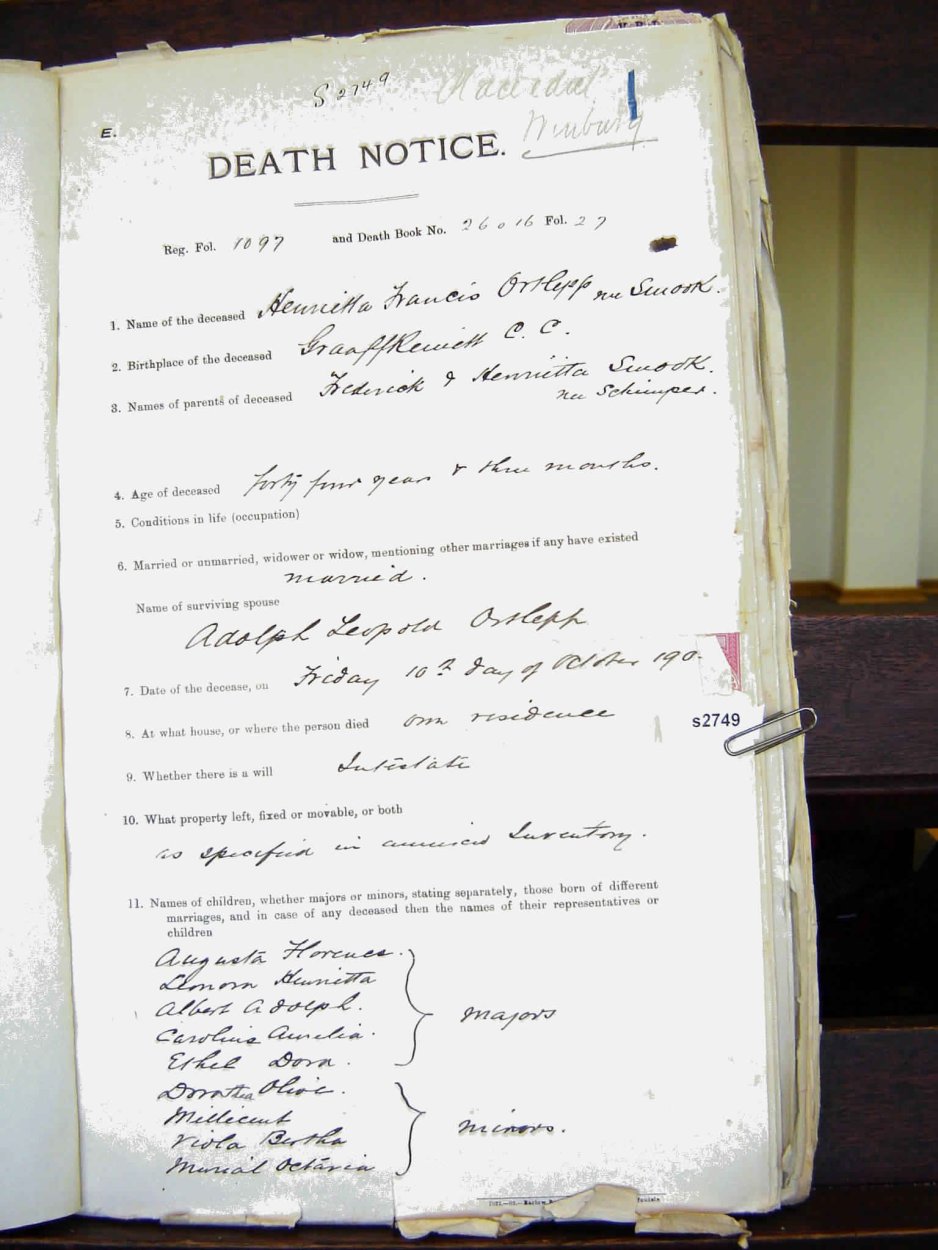 S 2749
Winburg
E.
DEATH NOTICE.
Reg. Fol. 1097 and Death Book No. 26016 Fol. 27
1. Name of the deceased Henrietta Francis Ortlepp nee Smook.
2. Birthplace of the deceased Graaff Reinett C. C.
3. Names of parents of deceased Frederick & Henriëtta Smook.
nee Schimper.
4. Age of deceased forty four years & three months.
5. Conditions in life (occupation)
6. Married or unmarried, widower or widow, mentioning other marriages if any have existed
married.
Name of surviving spouse
Adolph Leopold Ortlepp
7. Date of the decease, on Friday 10th day of October 190
8. At what house, or where the person died own residence
s2749
9. Whether there is a will Intestate
10. What property left, fixed or movable, or both
as specified in annexed Inventory.
11. Names of children, whether majors or minors, stating separately, those born of different
marriages, and in case of any deceased then the names of their representatives or
children
Augusta Florence.
Lenora Henrietta
Albert Adolph. majors
Caroline Aurelia.
Ethel Dora.
Dorothea Olive.
Millicent
Viola Bertha minors.
Murial Octavia